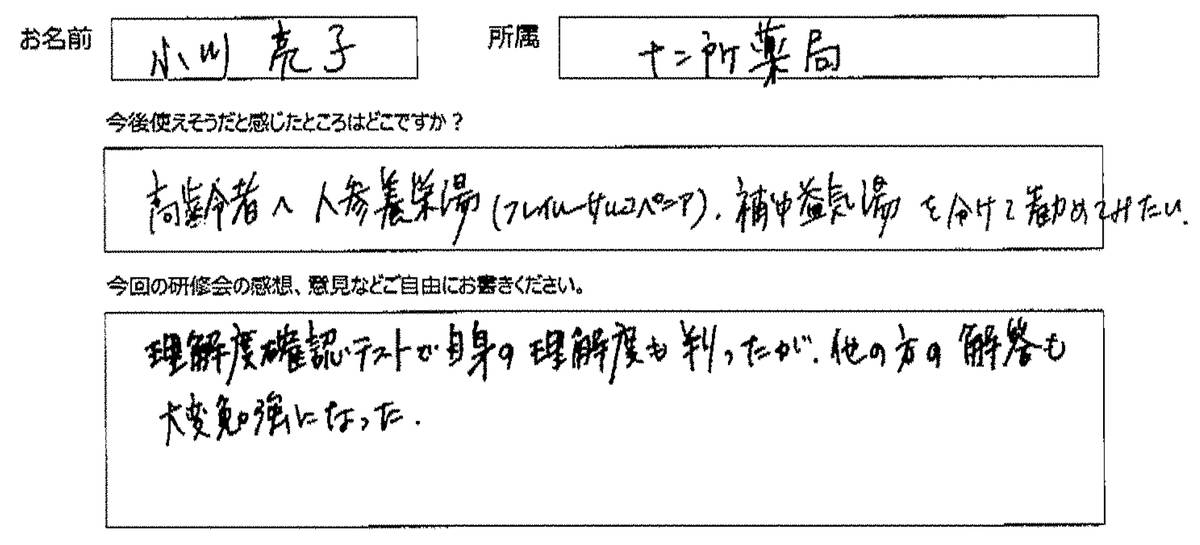 お名前 小川 亮子 所属 十二所薬局
今後使えそうだと感じたところはどこですか？
高齢者へ人参養栄湯(フレイル-サルコペニア)、補中益気湯を分けて勧めてみたい.
今回の研修会の感想、意見などご自由にお書きください。
理解度確認テストが自身の理解度も判ったが、他の方の解答も
大変勉強になった.